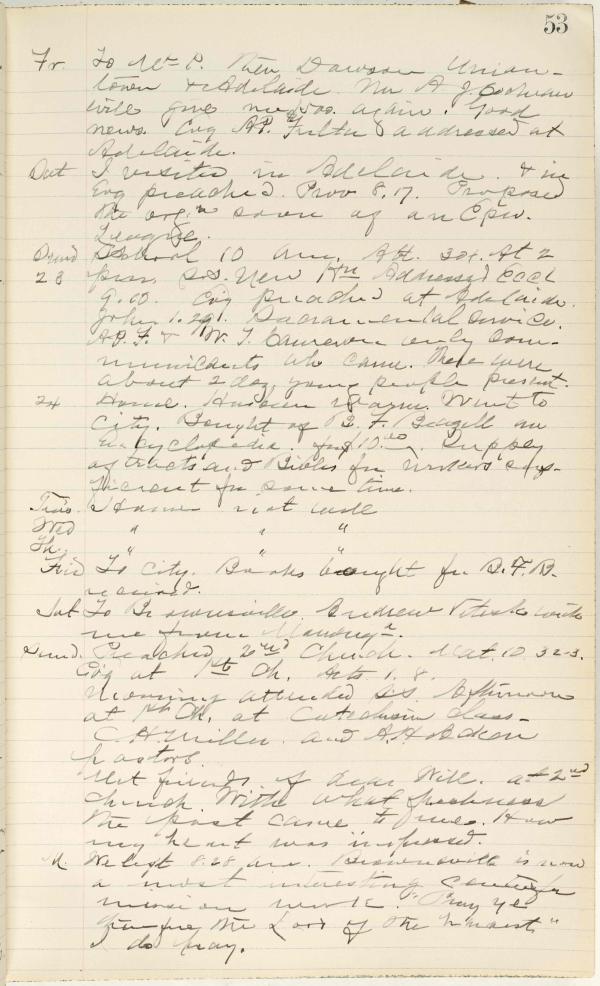 53
Fr. To Mt P. then Dawson Union-
town & Adelaide. Mr A J. Cochran
will give me $500. again. Good
news. Evg A.P. addressed at
Adelaide.
Sat I visited in Adelaide. & in
Evg preached. Prov 8.17. Proposed
the orgn soon of an C.
League.
Sund School 10 am. Att. 304. At 2
23 S.S. New Addressed Eccl
9.10. Evg preached at Adelaide.
John 1.29. Sacramental service.
A.P.F. & W. J. Cameron only com-
municants who came. There were
about 2 doz. young people present.
24 Home. Went to
City. Bought of B. F. an
Encyclopedia. for $10.00. Supply
of tracts and Bibles for workers suf-
ficient for some time.
Tues. Home not well
Wed " " "
Th. " " "
Frid To City. Books bought for B.F.B.
received.
Sat. To Brownsville Andrew with
me from
Sund. Preached 2nd Church. Mat. 10.32-3.
Evg at 1st Ch. Acts. 1.8.
Morning attended S.S. Afternoon
at 1st Ch. at Catechism class-
C. H. Miller and A. H.
pastors.
Met friends of dear Will. at 2nd
Church. With what freshness
the past came to me. How
my heart was impressed.
M. We left 8.28 am. Brownsville is now
a most interesting center for
mission work. "Pray ye
the Lord of the harvest"
I do pray.